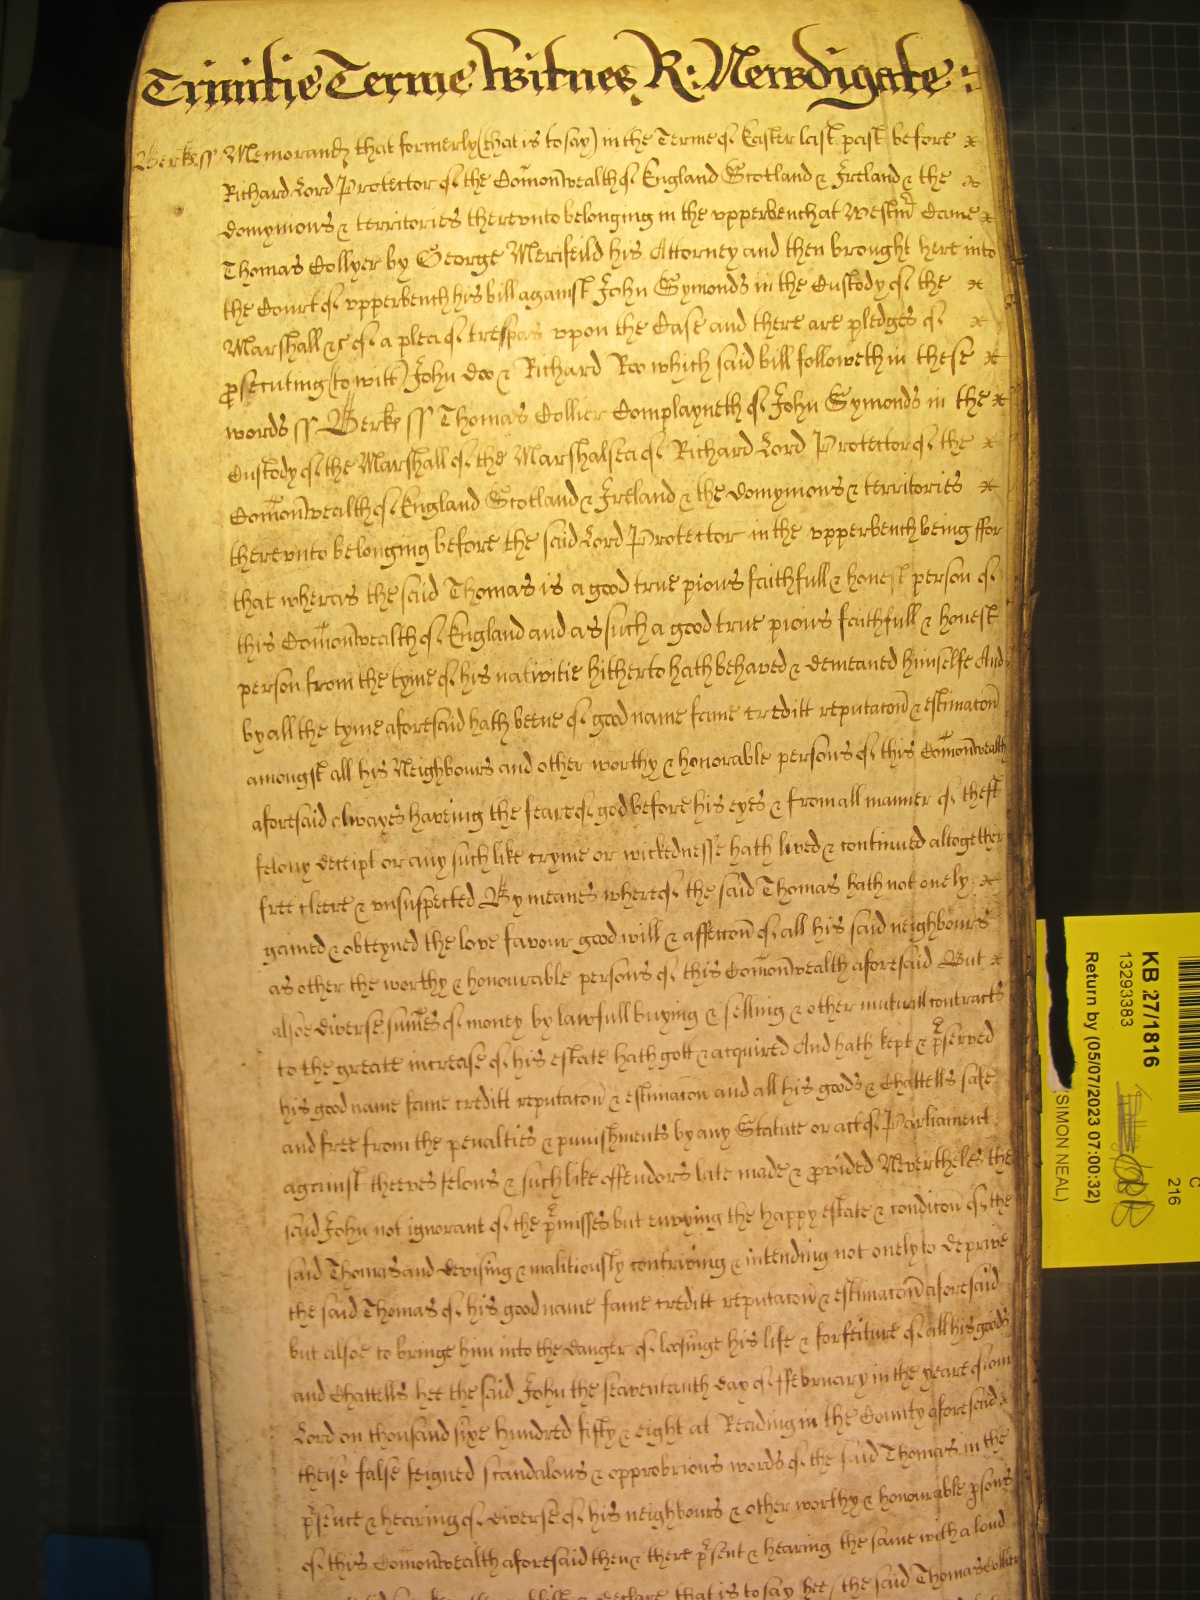 Trinitie Terme Witnes R: Newdigate:
Berks ss Memorand that formerly (that is to say) in the Terme of Easter last past before
Richard Lord Protector of the Comonwealth of England Scotland & Ireland & the
domynions & territories therevnto belonging in the vpperbench at Westm Came
Thomas Collyer by George Merifeild his Attorney and then brought here into
the Court of vpperbench his bill against John Symonds in the Custody of the
Marshall &c of a plea of trespas vpon the Case and there are pledges of
psecuting (to witt) John doo & Richard Roo which said bill followeth in these
words ss Berks ss Thomas Collier Complayneth of John Symonds in the
Custody of the Marshall of the Marshalsea of Richard Lord Protector of the
Comonwealth of England Scotland & Ireland & the domynions & territories
therevnto belonging before the said Lord Protector in the vpperbench being ffor
that wheras the said Thomas is a good true pious faithfull & honest person of
this Comonwealth of England and as such a good true pious faithfull & honest
person from the tyme of his nativitie hitherto hath behaved & demeaned himselfe And
by all the tyme aforesaid hath beene of good name fame creditt reputacon & estimacon
amongst all his Neighbours and other worthy & honorable persons of this Comonwealth
aforesaid alwayes haveing the feare of god before his eyes & from all manner of theft
felony deceipt or any such like cryme or wickednesse hath lived & continued altogether
free cleere & vnsuspected By meanes whereof the said Thomas hath not onely
gained & obteyned the love favour good will & affeccon of all his said neighbours
as other the worthy & honourable persons of this Comonwealth aforesaid But
alsoe diverse sumes of money by lawfull buying & selling & other mutuall contracts
to the greate increase of his estate hath gott & acquired And hath kept & pserved
his good name fame creditt reputacon & estimacon and all his goods & Chattells safe
and free from the penalties & punishments by any Statute or act of Parliament
against theeves felons & such like offendors late made & provided Nevertheles the
said John not ignorant of the pmisses but envying the happy estate & condicon of the
said Thomas and devising & malitiously contriving & intending not onely to deprive
the said Thomas of his good name fame creditt reputacon & estimacon aforesaid
but alsoe to bringe him into the danger of loosinge his life & forfeiture of all his goods
and Chattells hee the said John the seaventeenth day of ffebruary in the yeare of our
Lord on thousand sixe hundred fifty & eight at Reading in the County aforesaid
theise false feigned scandalous & opprobrious words of the said Thomas in the
psence & hearing of diverse of his neighbours & other worthy & honourable psons
of this Comonwealth aforesaid then & there psent & hearing the same with a loud
declare that is to say hee (the said Thomas Collier
KB 27/1816
13293383
Return by (05/07/2023 07:00:32)
SIMON NEAL)
C
216